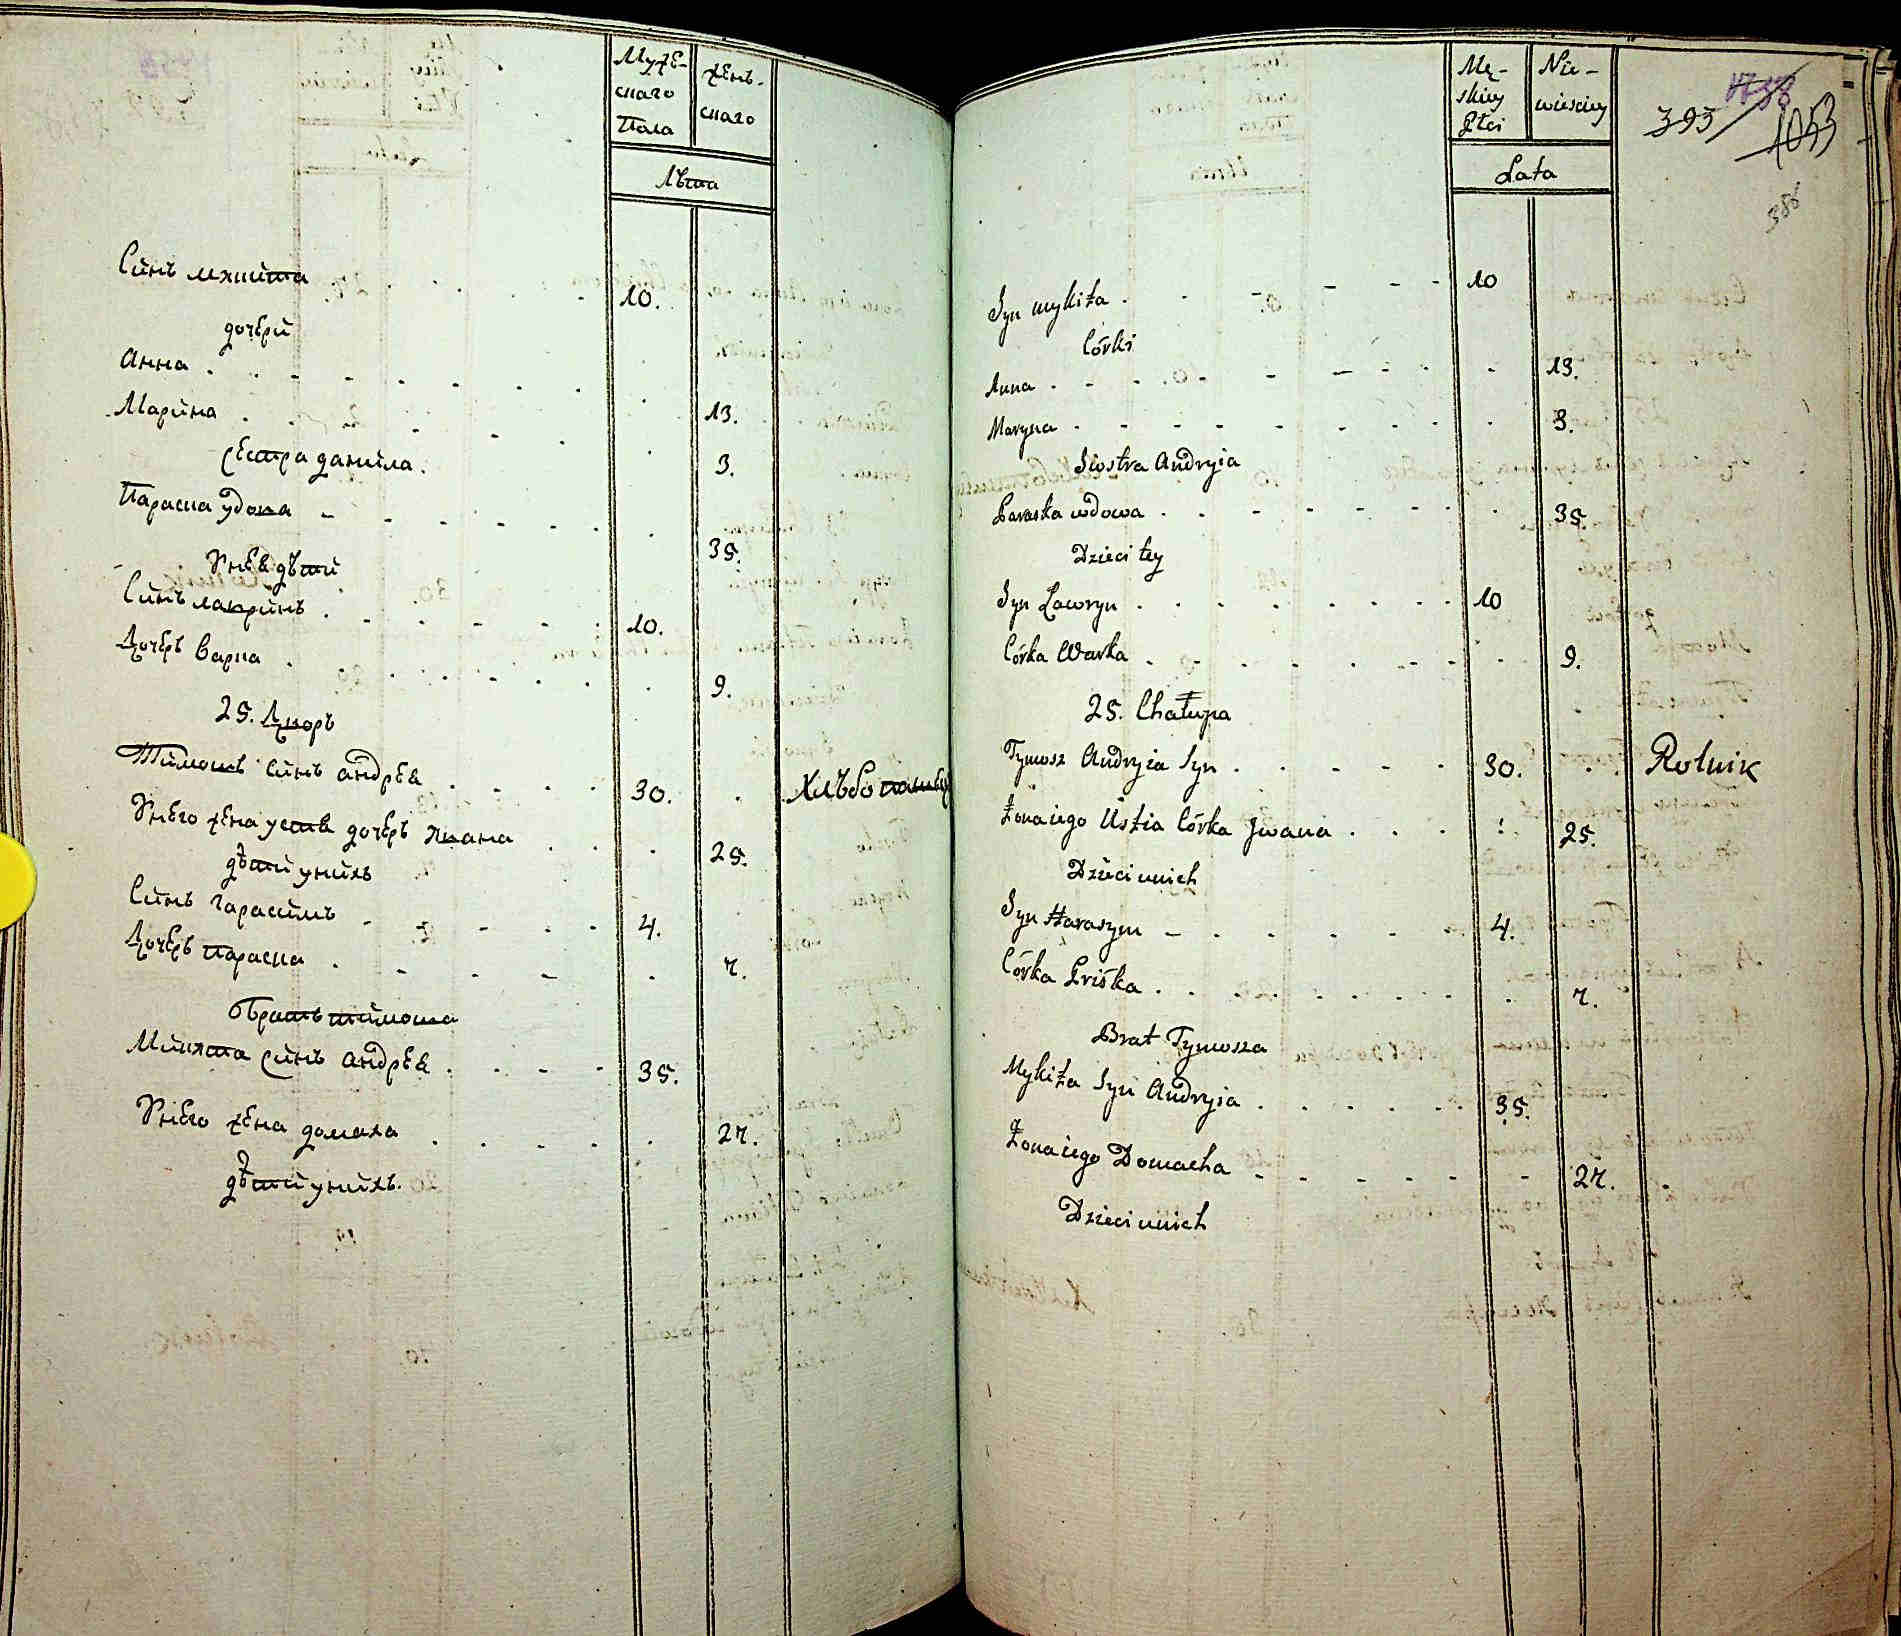 Муже-
скаго
Пола
жень-
скаго
Лѣта
Синъ микита 10.
дочери
Анна 13.
Марина 3.
сестра данила.
Параска удова 35.
У неѣ дѣти
Синъ лавринъ 10.
Дочерь варка 9.
25. Дворъ
Тимошъ синъ андрѣя 30. Хлѣбопашец
У него жена устя дочерь ивана 25.
дѣти у нихъ
Синъ гарасимъ 4.
Дочерь параска 7.
братъ тимоша
Микита синъ андрѣя 35.
У него жена домаха 27.
дѣти у нихъ.
Mę-
skiey
Płci
Nie-
wieściey
Lata
393
1758
1053
388
Syn mykita 10
Córki
Anna 13.
Maryna 3.
Siostra Andryia
Paraska wdowa 35.
Dzieci tey
Syn Lawryn 10
Córka Warka 9.
25. Chałupa
Tymosz Andryia Syn 30. Rolnik
Żona iego Ustia Córka Jwana 25.
Dzieci unich
Syn Haraszym 4.
Córka Priśka 7.
Brat Tymosza
Mykita Syn Andryia 35.
Żona iego Domacha 27.
Dzieci unich